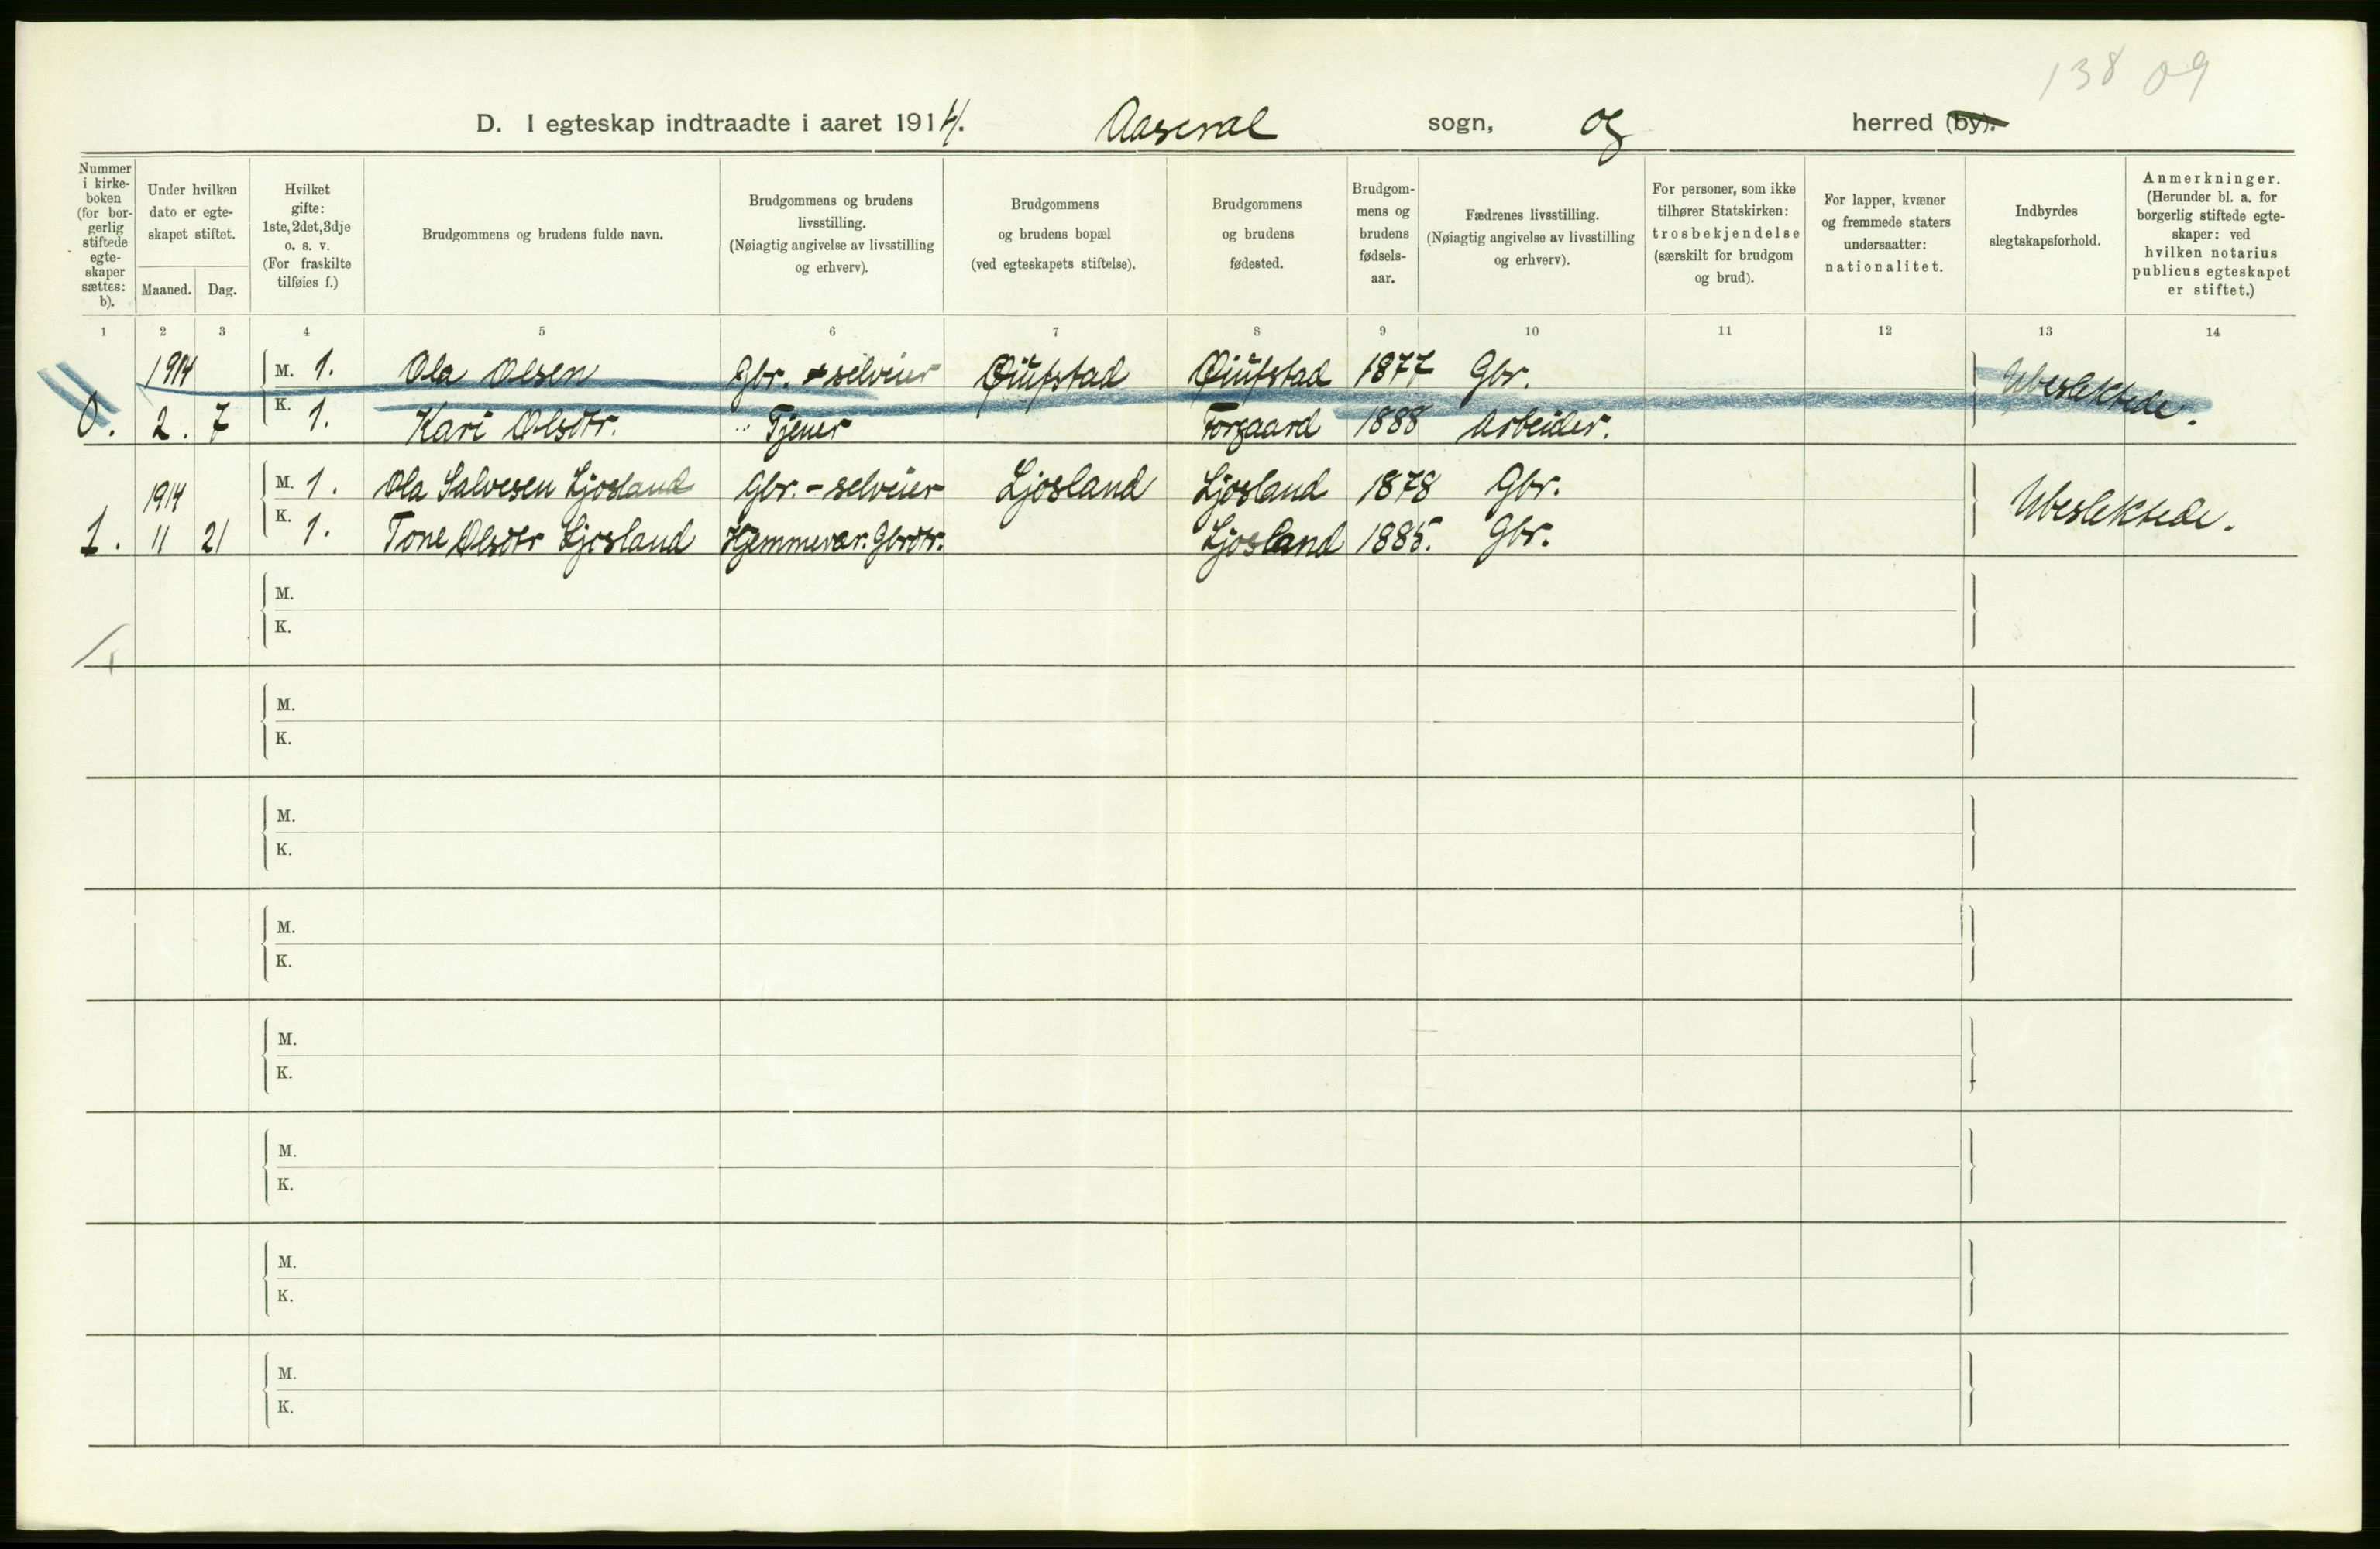 138 09
D. I egteskap indtraadte i aaret 1914. Aaseral sogn, og herred (by).
Nummer i kirkeboken (for borgerlig stiftede egteskaper sættes: b).
Under hvilken dato er egteskapet stiftet.
Maaned. Dag.
Hvilket gifte: 1ste, 2det, 3dje o. s. v. (For fraskilte tilføies f.)
Brudgommens og brudens fulde navn.
Brudgommens og brudens livsstilling. (Nøiagtig angivelse av livsstilling og erhverv).
Brudgommens og brudens bopæl (ved egteskapets stiftelse).
Brudgommens og brudens fødested.
Brudgommens og brudens fødselsaar.
Fædrenes livsstilling. (Nøiagtig angivelse av livsstilling og erhverv).
For personer, som ikke tilhører Statskirken: trosbekjendelse (særskilt for brudgom og brud).
For lapper, kvæner og fremmede staters undersaatter: nationalitet.
Indbyrdes slegtskapsforhold.
Anmerkninger. (Herunder bl. a. for borgerlig stiftede egteskaper: ved hvilken notarius publicus egteskapet er stiftet.)
1 2 3 4 5 6 7 8 9 10 11 12 13 14
1914 M. 1. Ola Olsen Gbr. - selveier Øiufstad Øiufstad 1877 Gbr. Ubeslektede.
0. 2. 7 K. 1. Kari Olsdtr. Tjener Forgaard 1888 Arbeider.
1914 M. 1. Ola Salvesen Ljosland Gbr. - selveier Ljosland Ljosland 1878 Gbr. Ubeslektede.
1. 11 21 K. 1. Tone Olsdtr Ljosland Hjemmevær. Gbrdtr. Ljosland 1885. Gbr.
M.
K.
M.
K.
M.
K.
M.
K.
M.
K.
M.
K.
M.
K.
M.
K.